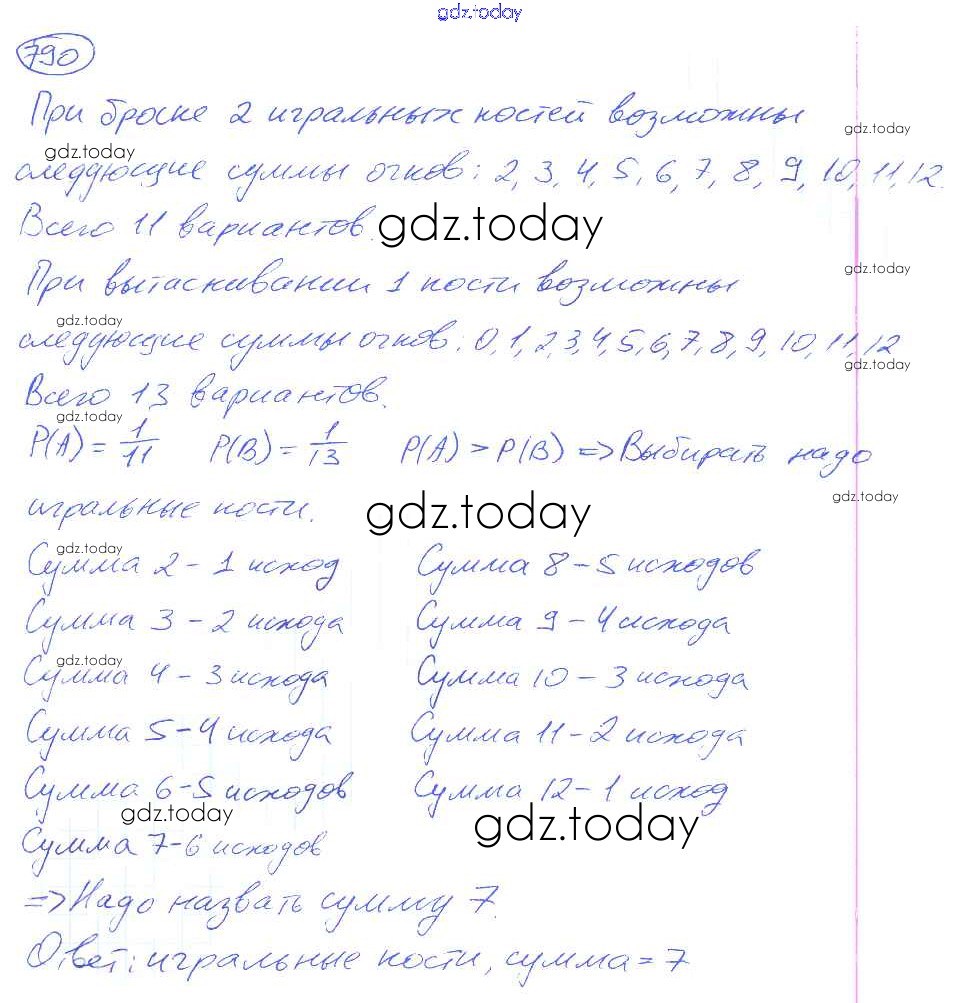 gdz.today
790
При броске 2 игральных костей возможны
gdz.today
gdz.today
следующие суммы очков: 2, 3, 4, 5, 6, 7, 8, 9, 10, 11, 12.
Всего 11 вариантов.
gdz.today
gdz.today
При вытаскивании 1 кости возможны
gdz.today
следующие суммы очков: 0, 1, 2, 3, 4, 5, 6, 7, 8, 9, 10, 11, 12
gdz.today
Всего 13 вариантов.
gdz.today
P(A) = 1/11 P(B) = 1/13 P(A) > P(B) => Выбирать надо
gdz.today
игральные кости.
gdz.today
gdz.today
Сумма 2 - 1 исход Сумма 8 - 5 исходов
Сумма 3 - 2 исхода Сумма 9 - 4 исхода
gdz.today
Сумма 4 - 3 исхода Сумма 10 - 3 исхода
Сумма 5 - 4 исхода Сумма 11 - 2 исхода
Сумма 6 - 5 исходов Сумма 12 - 1 исход
gdz.today
gdz.today
Сумма 7 - 6 исходов
=> Надо назвать сумму 7.
Ответ: игральные кости, сумма = 7